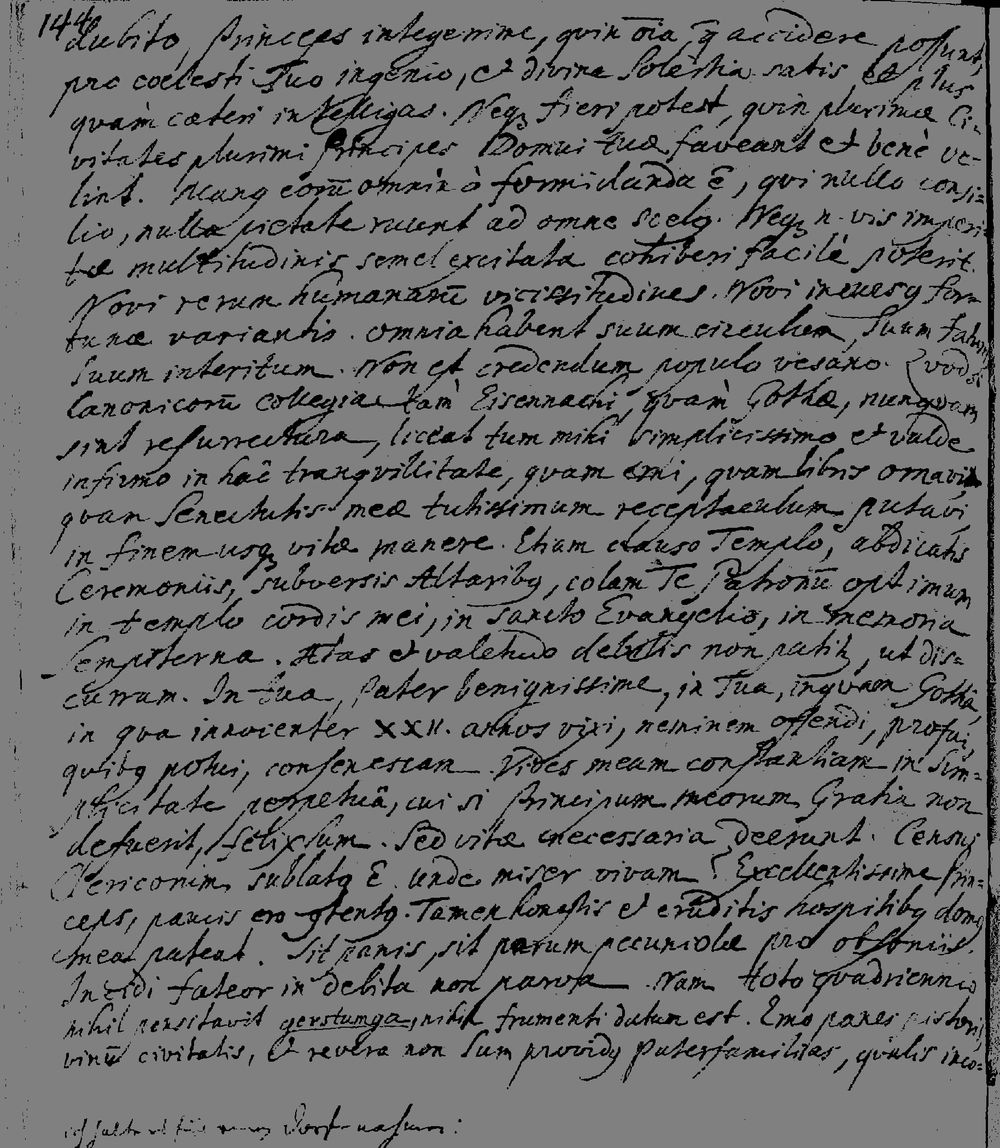 144
dubito, Princeps integerrime, quin o̅ia q̅ accidere possunt,
pro coelesti Tuo ingenio, et divina Solertia satis et plus
quàm caeteri intelligas. Neqz fieri potest, quin plurimae Ci-
vitates plurimi Principes Domui tuae faveant et benè ve-
lint. Manq eorū omnin ò formidanda ē, qui nullo consi-
lio, nulla pietate ruunt ad omne scelq. Neqz n. vis imperi-
tae multitudinis semel excitata cohiberi facilè poterit.
Novi rerum humanarū vicissitudines. Novi for-
tunae variantis. omnia habent suum circulum, Suum fatum
Suum interitum. Non est credendum populo vesano. Quodsi
Canonicorū collegia tam Eisennachi, quàm Gothae, nunquam
sint resurrectura, liceat tum mihi simplicissimo et valde
infirmo in hac tranquillitate, quam emi, quam libris ornavi,
quam Senectutis meae tutissimum receptaculum putavi,
in finem usqz vitae manere. Etiam clauso Templo, abdicatis
Ceremoniis, subversis Altaribq, colam Te Patronū optimum
in templo cordis mei, in sancto Evangelio, in memoria
Sempiterna. Aetas et valetudo debilis non patitz, ut dis-
curram. In tua, Pater benignissime, in Tua, inquam Gotha,
in qua innocenter XXII. annos vixi, neminem offendi, profui,
quibq potui, consenescam. Vides meam constantiam in Sim-
plicitate perpetuâ, cui si Principum meorum Gratia non
defuerit, felix sum. Sed vitae necessaria deerunt. Census
Clericorum sublatq ē. unde miser vivam? Excellentissime Prin-
ceps, paucis ero gtentq. Tamen honestis et eruditis hospitibq domq
mea pateat. Sit panis, sit parum pecuniolae pro obsoniis.
Incidi fateor in debita non parva. Nam toto quadriennio
nihil pensitavit gerstunga, nihil frumenti datum est. Emo panes pistoris,
vinū civitatis, et revera non Sum providq Paterfamilias, qualis inco-